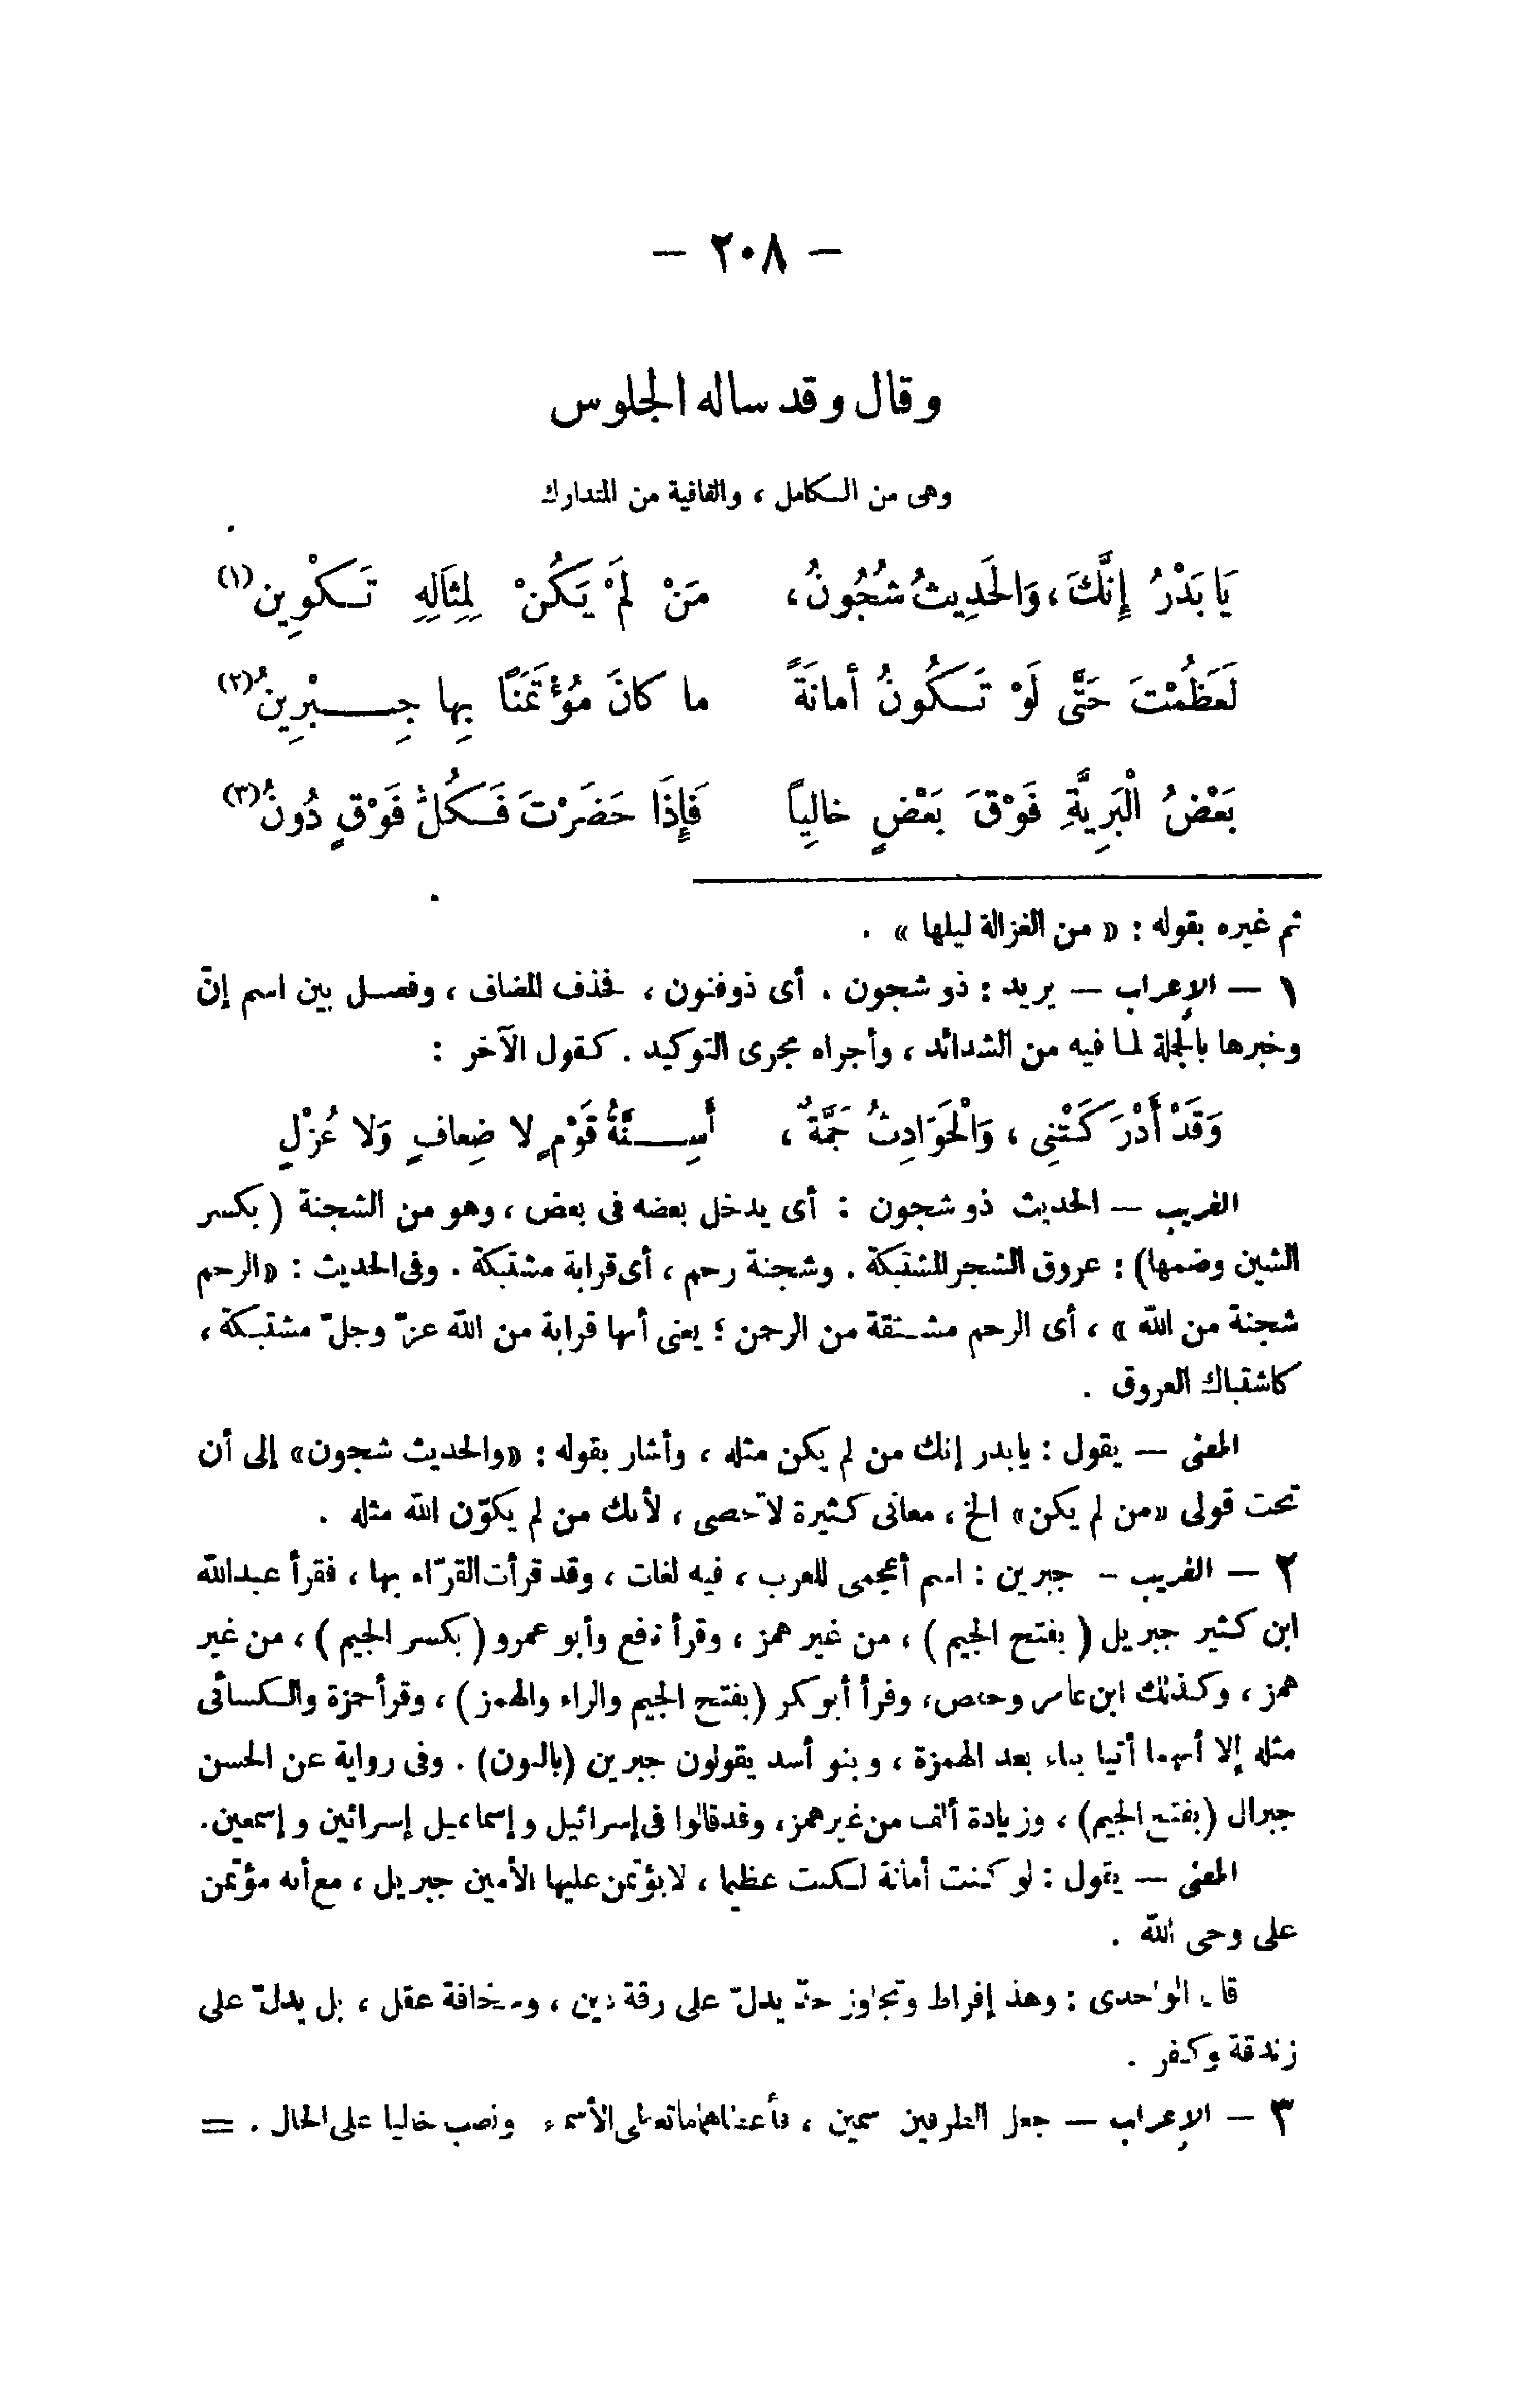 — ٢٠٨ —
وقال وقد ساله الجلوس
وهى من الكامل ، والقافية من المتدارك
يَا بَدْرُ إِنَّكَ ، وَالْحَدِيثُ شُجُونُ ، مَنْ لَمْ يَكُنْ لِمِثَالِهِ تَكْوِين (١)
لَعَظُمْتَ حَتَّى لَوْ تَكُونُ أمانَةً ما كانَ مُؤْتَمَنًا بِها جِبْرِينُ (٢)
بَعْضُ الْبَرِيَّةِ فَوْقَ بَعْضٍ خالِياً فَإِذَا حَضَرْتَ فَكُلُّ فَوْقٍ دُونُ (٣)
ثم غيره بقوله : « من الغزالة ليلها » .
١ — الإعراب — يريد : ذو شجون . أى ذوفنون ، فحذف المضاف ، وفصل بين اسم إنّ
وخبرها بالجملة لما فيه من الشدائد ، وأجراه مجرى التوكيد . كقول الآخر :
وَقَدْ أَدْرَكَتْنِى ، وَالْحَوَادِثُ جَمَّةٌ ، أَسِنَّةُ قَوْمٍ لا ضِعافٍ وَلا عُزْلِ
الغريب — الحديث ذو شجون : أى يدخل بعضه فى بعض ، وهو من الشجنة ( بكسر
الشين وضمها) : عروق الشجر المشتبكة . وشجنة رحم ، أى قرابة مشتبكة . وفى الحديث : «الرحم
شجنة من اللّه » ، أى الرحم مشتقة من الرحمن ؛ يعنى أنها قرابة من اللّه عزّ وجلّ مشتبكة ،
كاشتباك العروق .
المعنى — يقول : يابدر إنك من لم يكن مثله ، وأشار بقوله : «والحديث شجون» إلى أن
تحت قولى «من لم يكن» الخ ، معانى كثيرة لاتحصى ، لأنك من لم يكوّن اللّه مثله .
٢ — الغريب - جبرين : اسم أعجمى للعرب ، فيه لغات ، وقد قرأت القرّاء بها ، فقرأ عبداللّه
ابن كثير جبريل ( بفتح الجيم ) ، من غير همز ، وقرأ نافع وأبو عمرو ( بكسر الجيم ) ، من غير
همز ، وكذلك ابن عامر وحفص، وقرأ أبوبكر (بفتح الجيم والراء والهمز) ، وقرأ حمزة والكسائى
مثله إلا أنهما أتيا بياء بعد الهمزة ، وبنو أسد يقولون جبرين (بالنون) . وفى رواية عن الحسن
جبرال (بفتح الجيم) ، وزيادة ألف من غير همز، وقد قالوا فى إسرائيل وإسماعيل إسرائين وإسمعين.
المعنى — يقول : لو كنت أمانة لكنت عظيما ، لايؤتمن عليها الأمين جبريل ، مع أنه مؤتمن
على وحى اللّه .
قال الواحدى : وهذا إفراط وتجاوز حدّ يدلّ على رقة دين ، وسخافة عقل ، بل يدلّ على
زندقة وكفر .
٣ — الإعراب — جعل الظرفين سمين ، ونصب خاليا على الحال . =